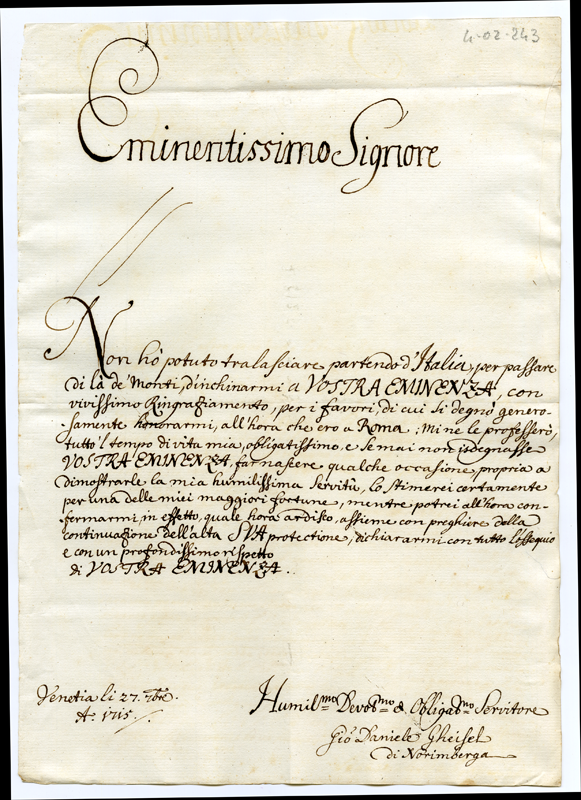 4-02-243
Eminentissimo Signore
Non hò potuto tralasciare partendo d'Italia, per passare
di là de' Monti, d'inchinarmi a VOSTRA EMINENZA, con
vivissimo Ringraziamento, per i favori, di cui si degnò genero-
-samente honorarmi, all'hora che ero a Roma; Mi ne le professerò,
tutto 'l tempo di vita mia, obligatissimo, e se mai non isdegnasse
VOSTRA EMINENZA, far nascere qualche occasione, propria a
dimostrarle la mia humilissima servitù, lo stimerei certamente
per una delle miei maggiori fortune, mentre potrei all'hora con-
-fermarmi, in effetto, quale hora ardisco, assieme con preghiere della
continuazione dell'alta SUA protectione, dichiararmi con tutto l'ossequio
e con un profondissimo rispetto
di VOSTRA EMINENZA.
Venetia li 27. 7bre.
A. 1715.
Humil.mo Devot.mo & Obligat.mo Servitore
Gio Daniele Gheisel
di Norimberga